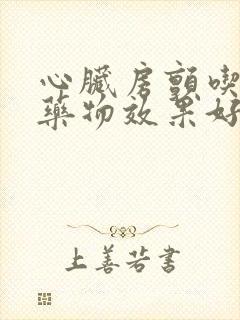 心臟房顫喫
藥物效果好
上善若書